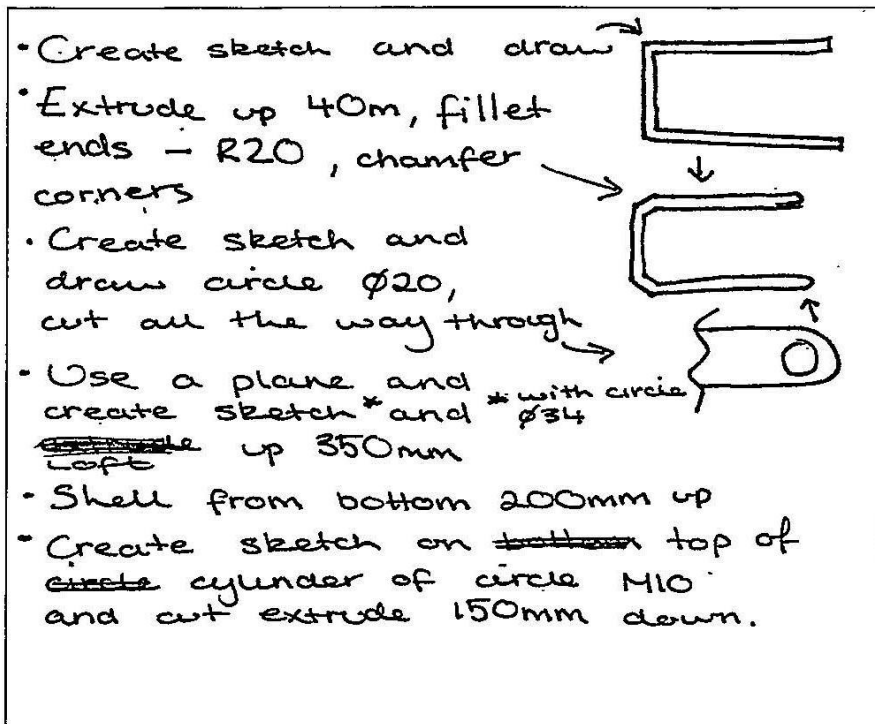 • Create sketch and draw
• Extrude up 40m, fillet
ends – R20, chamfer
corners
• Create sketch and
draw circle Ø20,
cut all the way through
• Use a plane and
create sketch* and *with circle
Ø34
extrude
Loft up 350mm
• Shell from bottom 200mm up
• Create sketch on bottom top of
circle cylinder of circle M10
and cut extrude 150mm down.